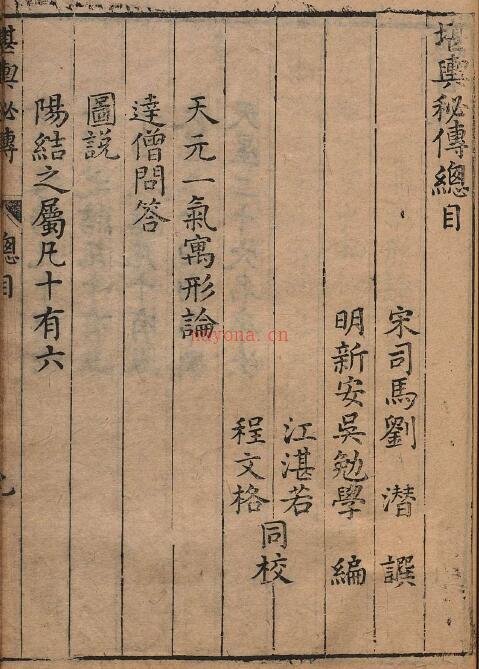 堪輿秘傳總目
宋司馬劉潛譔
明新安吳勉學編
江湛若
程文格
同校
天元一氣寓形論
達僧問答
圖說
陽結之屬凡十有六
堪輿秘傳
總目
nayona.cn